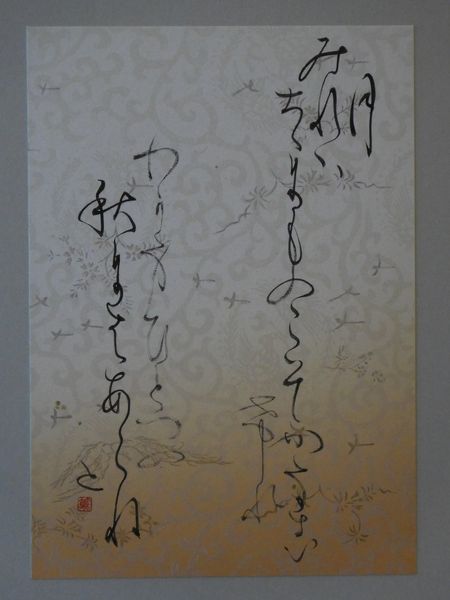 月
みれは
ちゝにものこそ
かなしけれ
わか身ひとつの
秋にはあらね
と